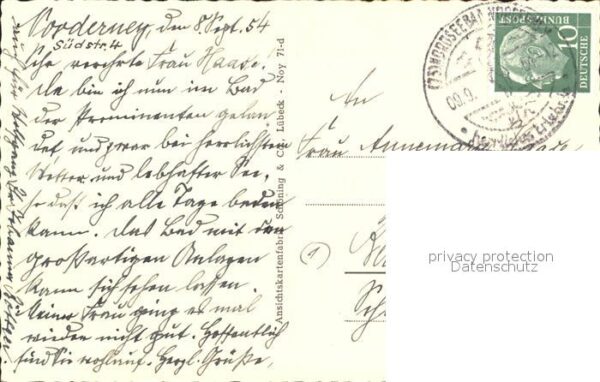 Norderney, den 8. Sept. 54
Südstr. 4
Sehr verehrte Frau Haase.
Da bin ich nun im Bad
der Prominenten gelan
det und zwar bei herrlichstem
Wetter und lebhafter See,
so daß ich alle Tage baden
kann. Das Bad mit den
großartigen Anlagen
kann sich sehen lassen.
Meiner Frau ging es mal
wieden nicht gut. Hoffentlich
sind Sie wohlauf. Herzl. Grüße,
auch für
Ansichtskartenfabrik Schöning & Co., Lübeck - Noy 71-d
NORDSEEBAD
10
BUNDESPOST
DEUTSCHE
An
Frau Annemarie
1
privacy protection
Datenschutz